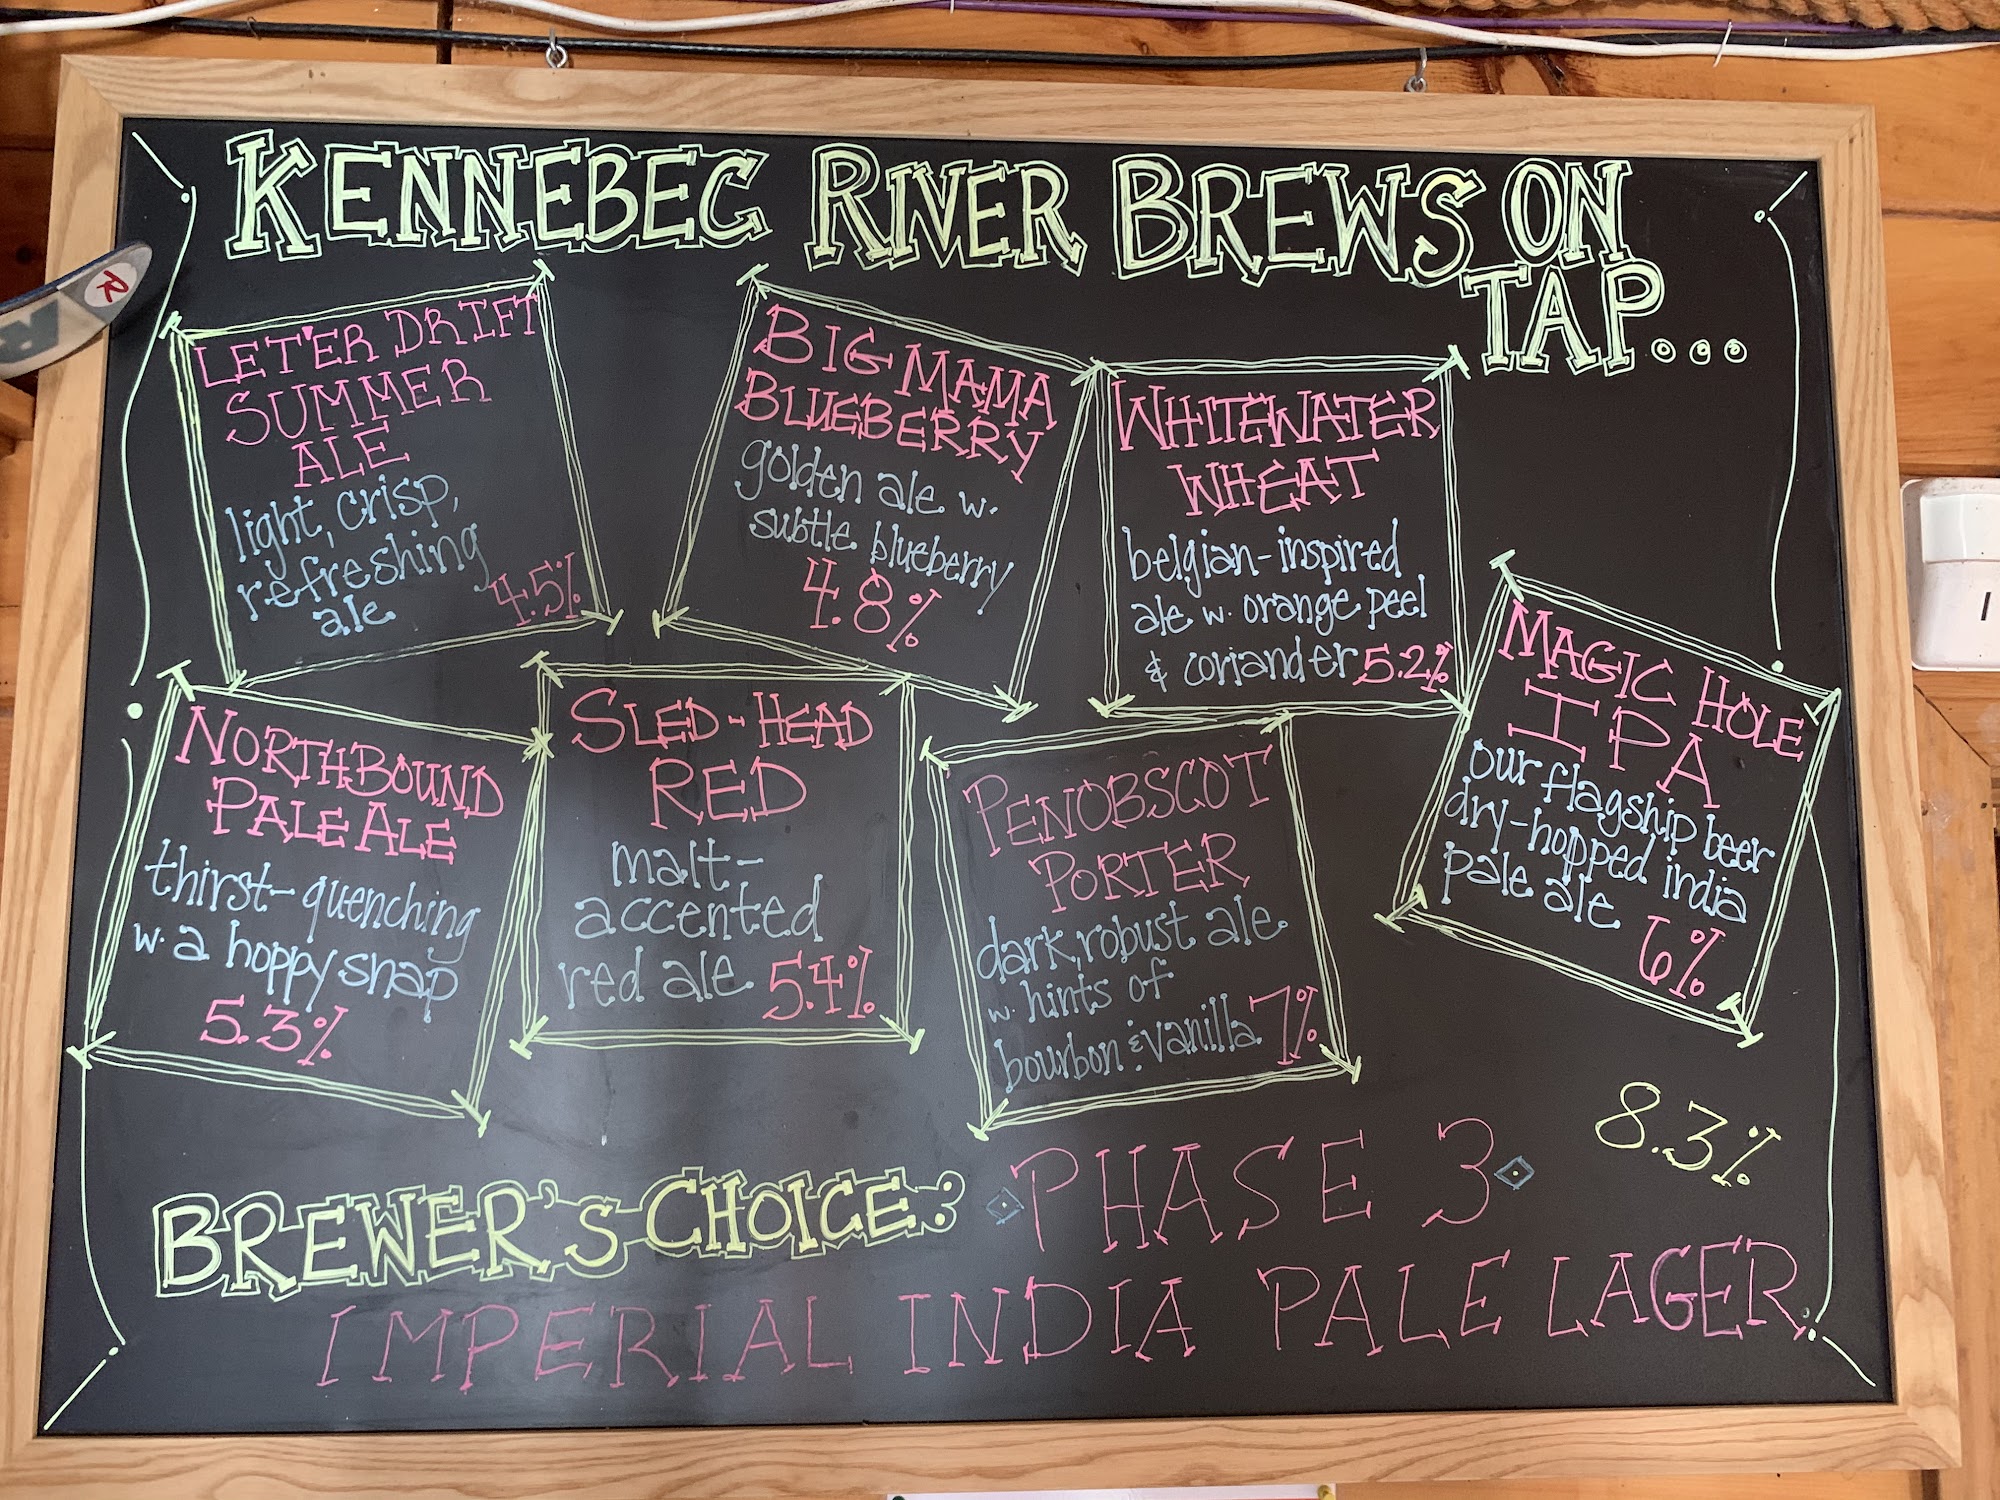 KENNEBEC RIVER BREWS ON
TAP...
LET'ER DRIFT
SUMMER
ALE
light, crisp,
refreshing
ale
4.5%
BIG MAMA
BLUEBERRY
golden ale w.
subtle blueberry
4.8%
WHITEWATER
WHEAT
belgian-inspired
ale w. orange peel
& coriander 5.2%
MAGIC HOLE
IPA
our flagship beer
dry-hopped india
pale ale
6%
NORTHBOUND
PALE ALE
thirst-quenching
w. a hoppy snap
5.3%
SLED-HEAD
RED
malt-
accented
red ale 5.4%
PENOBSCOT
PORTER
dark, robust ale
w. hints of
bourbon & vanilla 7%
8.3%
BREWER'S CHOICE: PHASE 3
IMPERIAL INDIA PALE LAGER
R